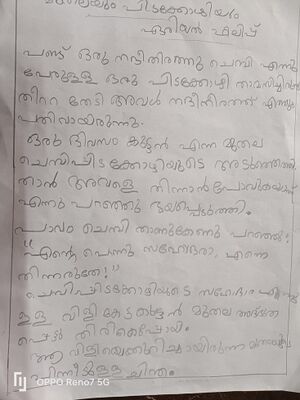 മുതലയും പിടക്കോഴിയും
ഏബ്രിയൽ ഫിലിപ്പ്
പണ്ട് ഒരു നദിതീരത്തു ചെമ്പി എന്നു
പേരുള്ള ഒരു പിടക്കോഴി താമസിച്ചിരുന്നു
തീറ്റ തേടി അവൾ നദീതീരത്ത് എത്തുക
പതിവായിരുന്നു.
ഒരു ദിവസം കുട്ടൻ എന്ന മുതല
ചെമ്പിപിടക്കോഴിയുടെ അടുത്തെത്തി.
താൻ അവളെ തിന്നാൻപോവുകയാണ്
എന്നു പറഞ്ഞു ഭയപ്പെടുത്തി.
പാവം ചെമ്പി താണുകേണു പറഞ്ഞു:
"എന്റെ പൊന്നു സഹോദരാ, എന്നെ
തിന്നരുതേ!"
ചെമ്പിപിടക്കോഴിയുടെ സഹോദര എന്നു
ള്ള വിളി കേട്ട കുട്ടൻ മുതല അത്ഭുത
പ്പെട്ടു തിരികെപ്പോയി.
ആ വിളിയെക്കുറിച്ചായിരുന്നു
പിന്നീടുള്ള ചിന്ത.
OPPO Reno7 5G